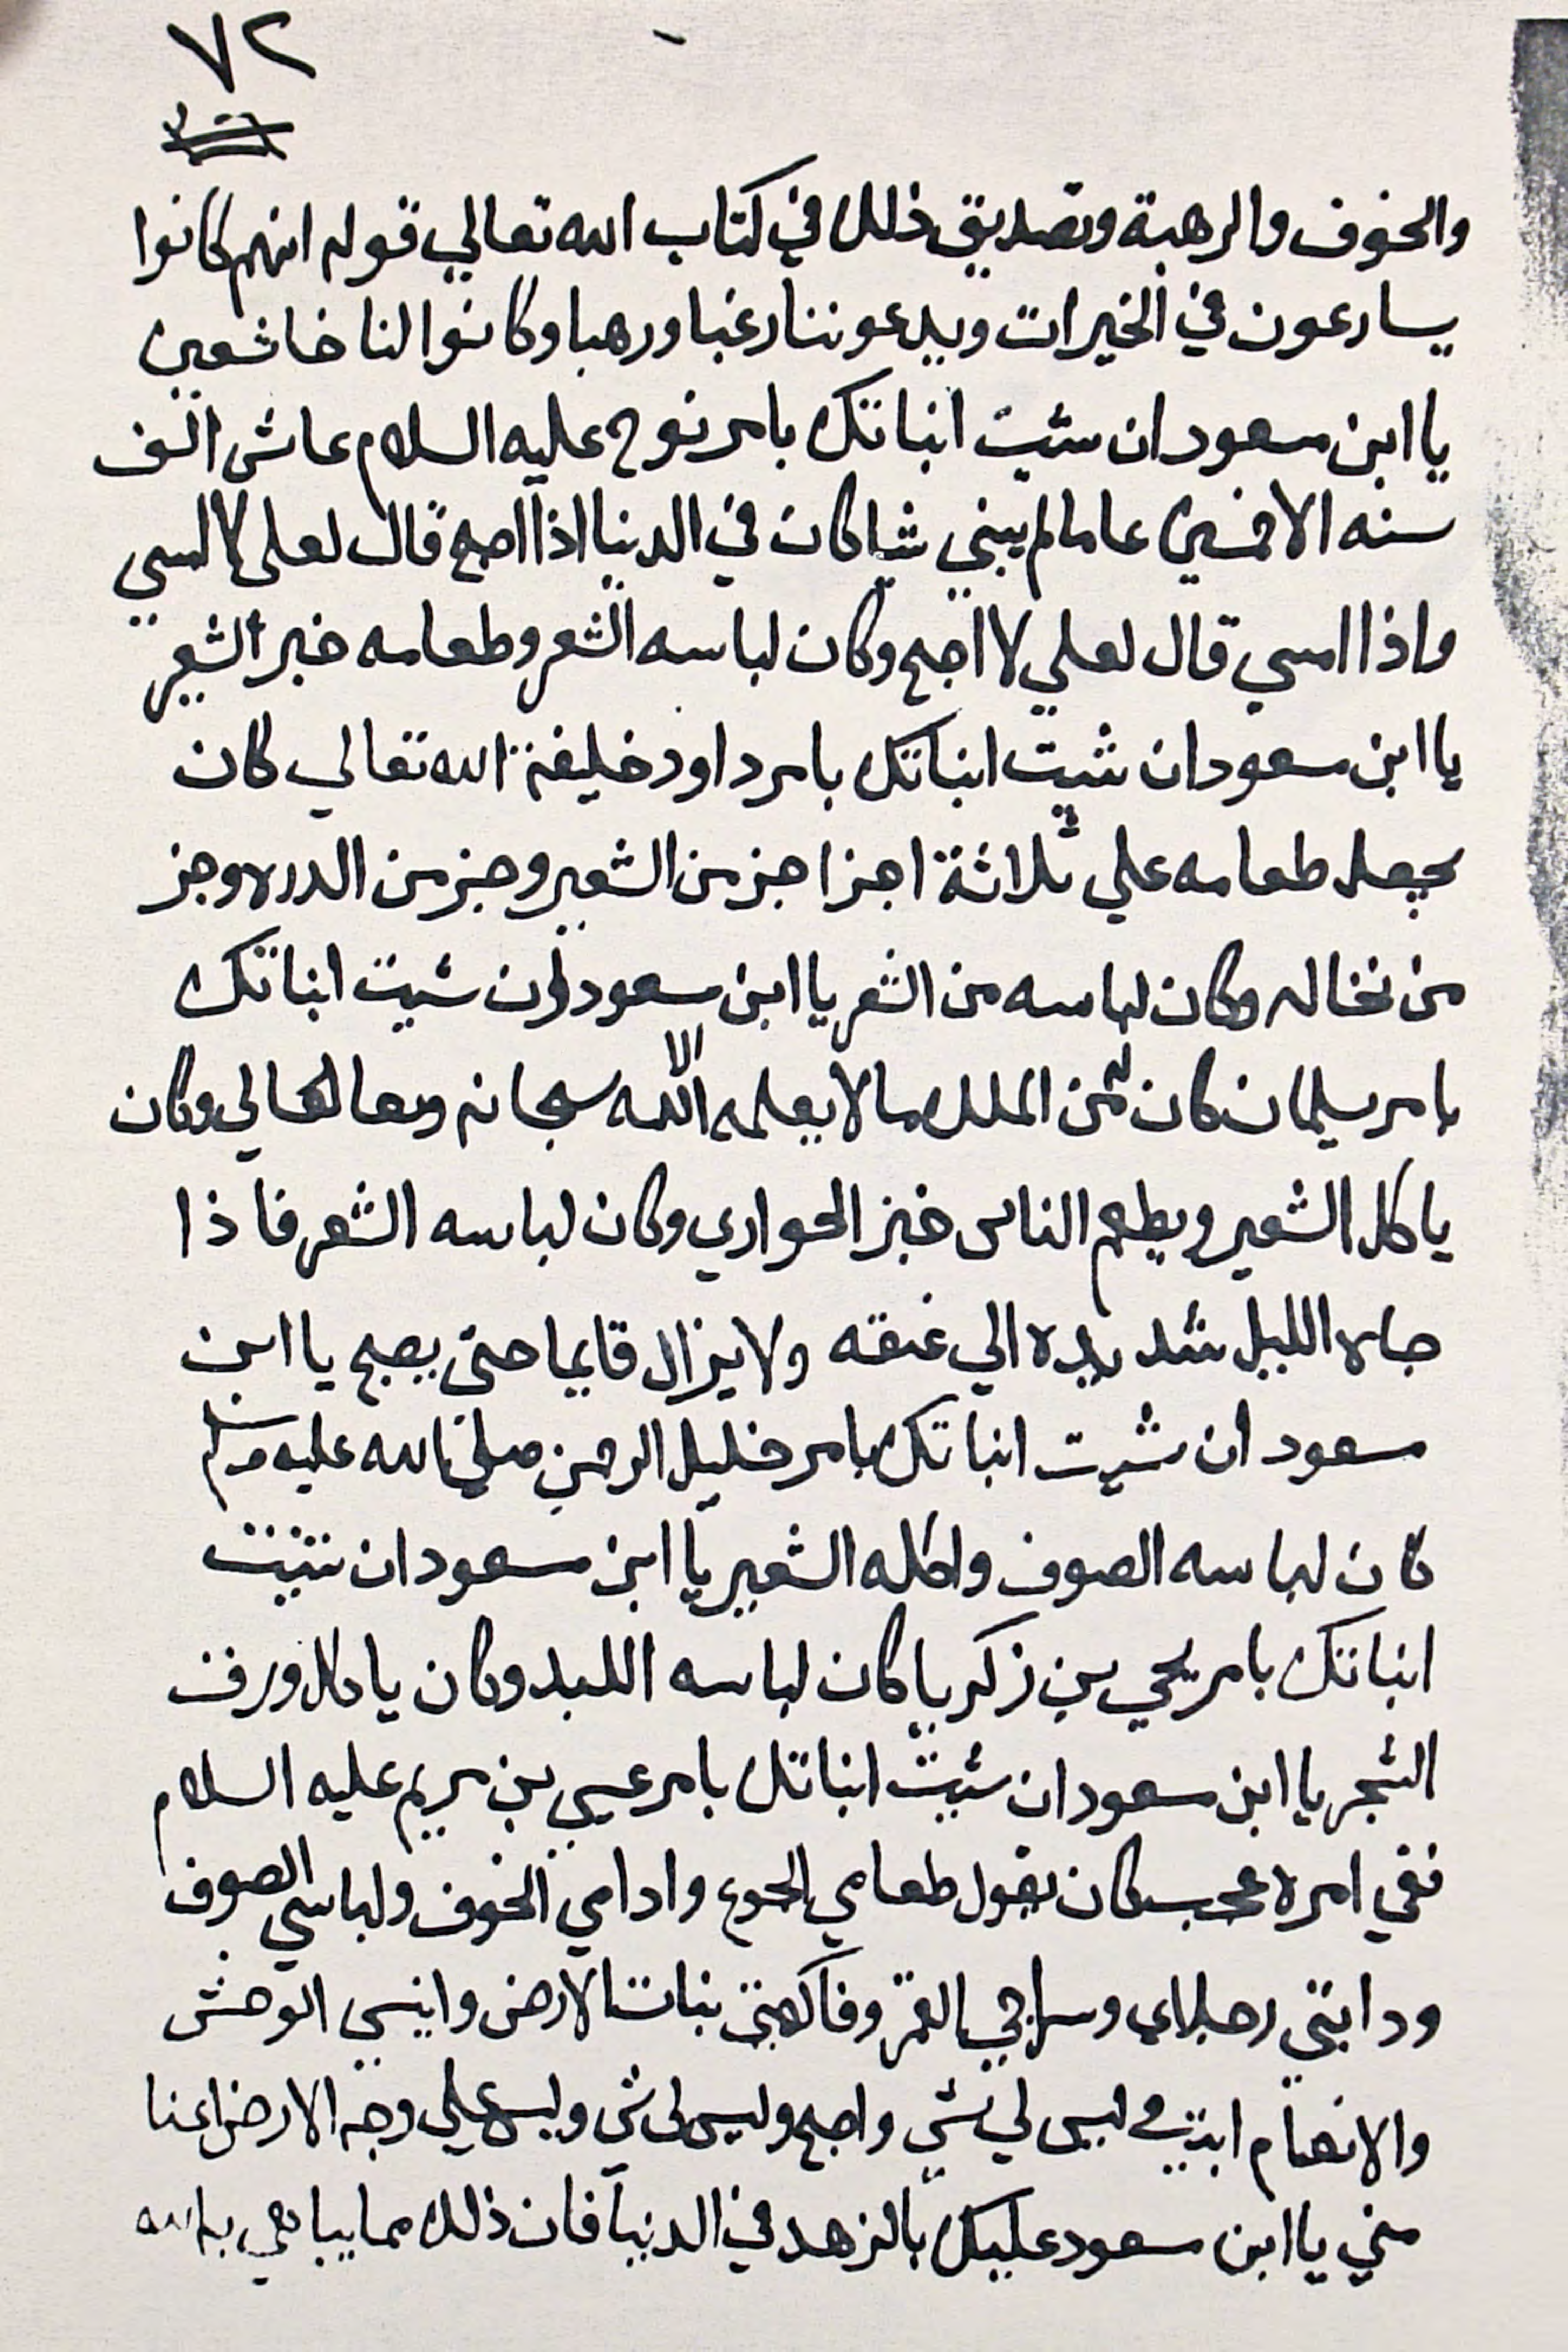 ٧٢
والخوف والرهبة وتصديق ذلك في كتاب الله تعالي قوله انهم كانوا
يسارعون في الخيرات ويدعوننا رغبا ورهبا وكانوا لنا خاشعين
يا ابن مسعود ان شيت انباتك بامر نوح عليه السلام عاش الف
سنه الا خمسين عاما لم يبني شيا كان في الدنيا اذا اصبح قال لعلي لا امسي
واذا امسي قال لعلي لا اصبح وكان لباسه الشعر وطعامه خبز الشعير
يا ابن مسعود ان شيت انباتك بامر داود خليفة الله تعالي كان
يجعل طعامه علي ثلاثة اجزا جز من الشعير وجز من الدره وجز
من نخاله وكان لباسه من الشعر يا ابن مسعود ان شيت انباتك
بامر سليمان كان من الملك ما لا يعلمه الا الله سبحانه وتعالي وكان
ياكل الشعير ويطعم الناس خبز الحواري وكان لباسه الشعر فاذا
جاه الليل شد يده الي عنقه ولا يزال قايما حتي يصبح يا ابن
مسعود ان شيت انباتك بامر خليل الرحمن صلي الله عليه وسلم
كان لباسه الصوف واكله الشعير يا ابن مسعود ان شيت
انباتك بامر يحيي بن زكريا كان لباسه اللبد وكان ياكل ورق
الشجر يا ابن مسعود ان شيت انباتك بامر عيسي بن مريم عليه السلام
ففي امره عجب كان يقول طعامي الجوع وادامي الخوف ولباسي الصوف
ودابتي رجلاي وسراجي القمر وفاكهتي نبات الارض وانيسي الوحش
والانعام ابيت وليس لي شي واصبح وليس لي شي وليس علي وجه الارض اغنا
مني يا ابن مسعود عليك بالزهد في الدنيا فان ذلك مما يباهي به الله